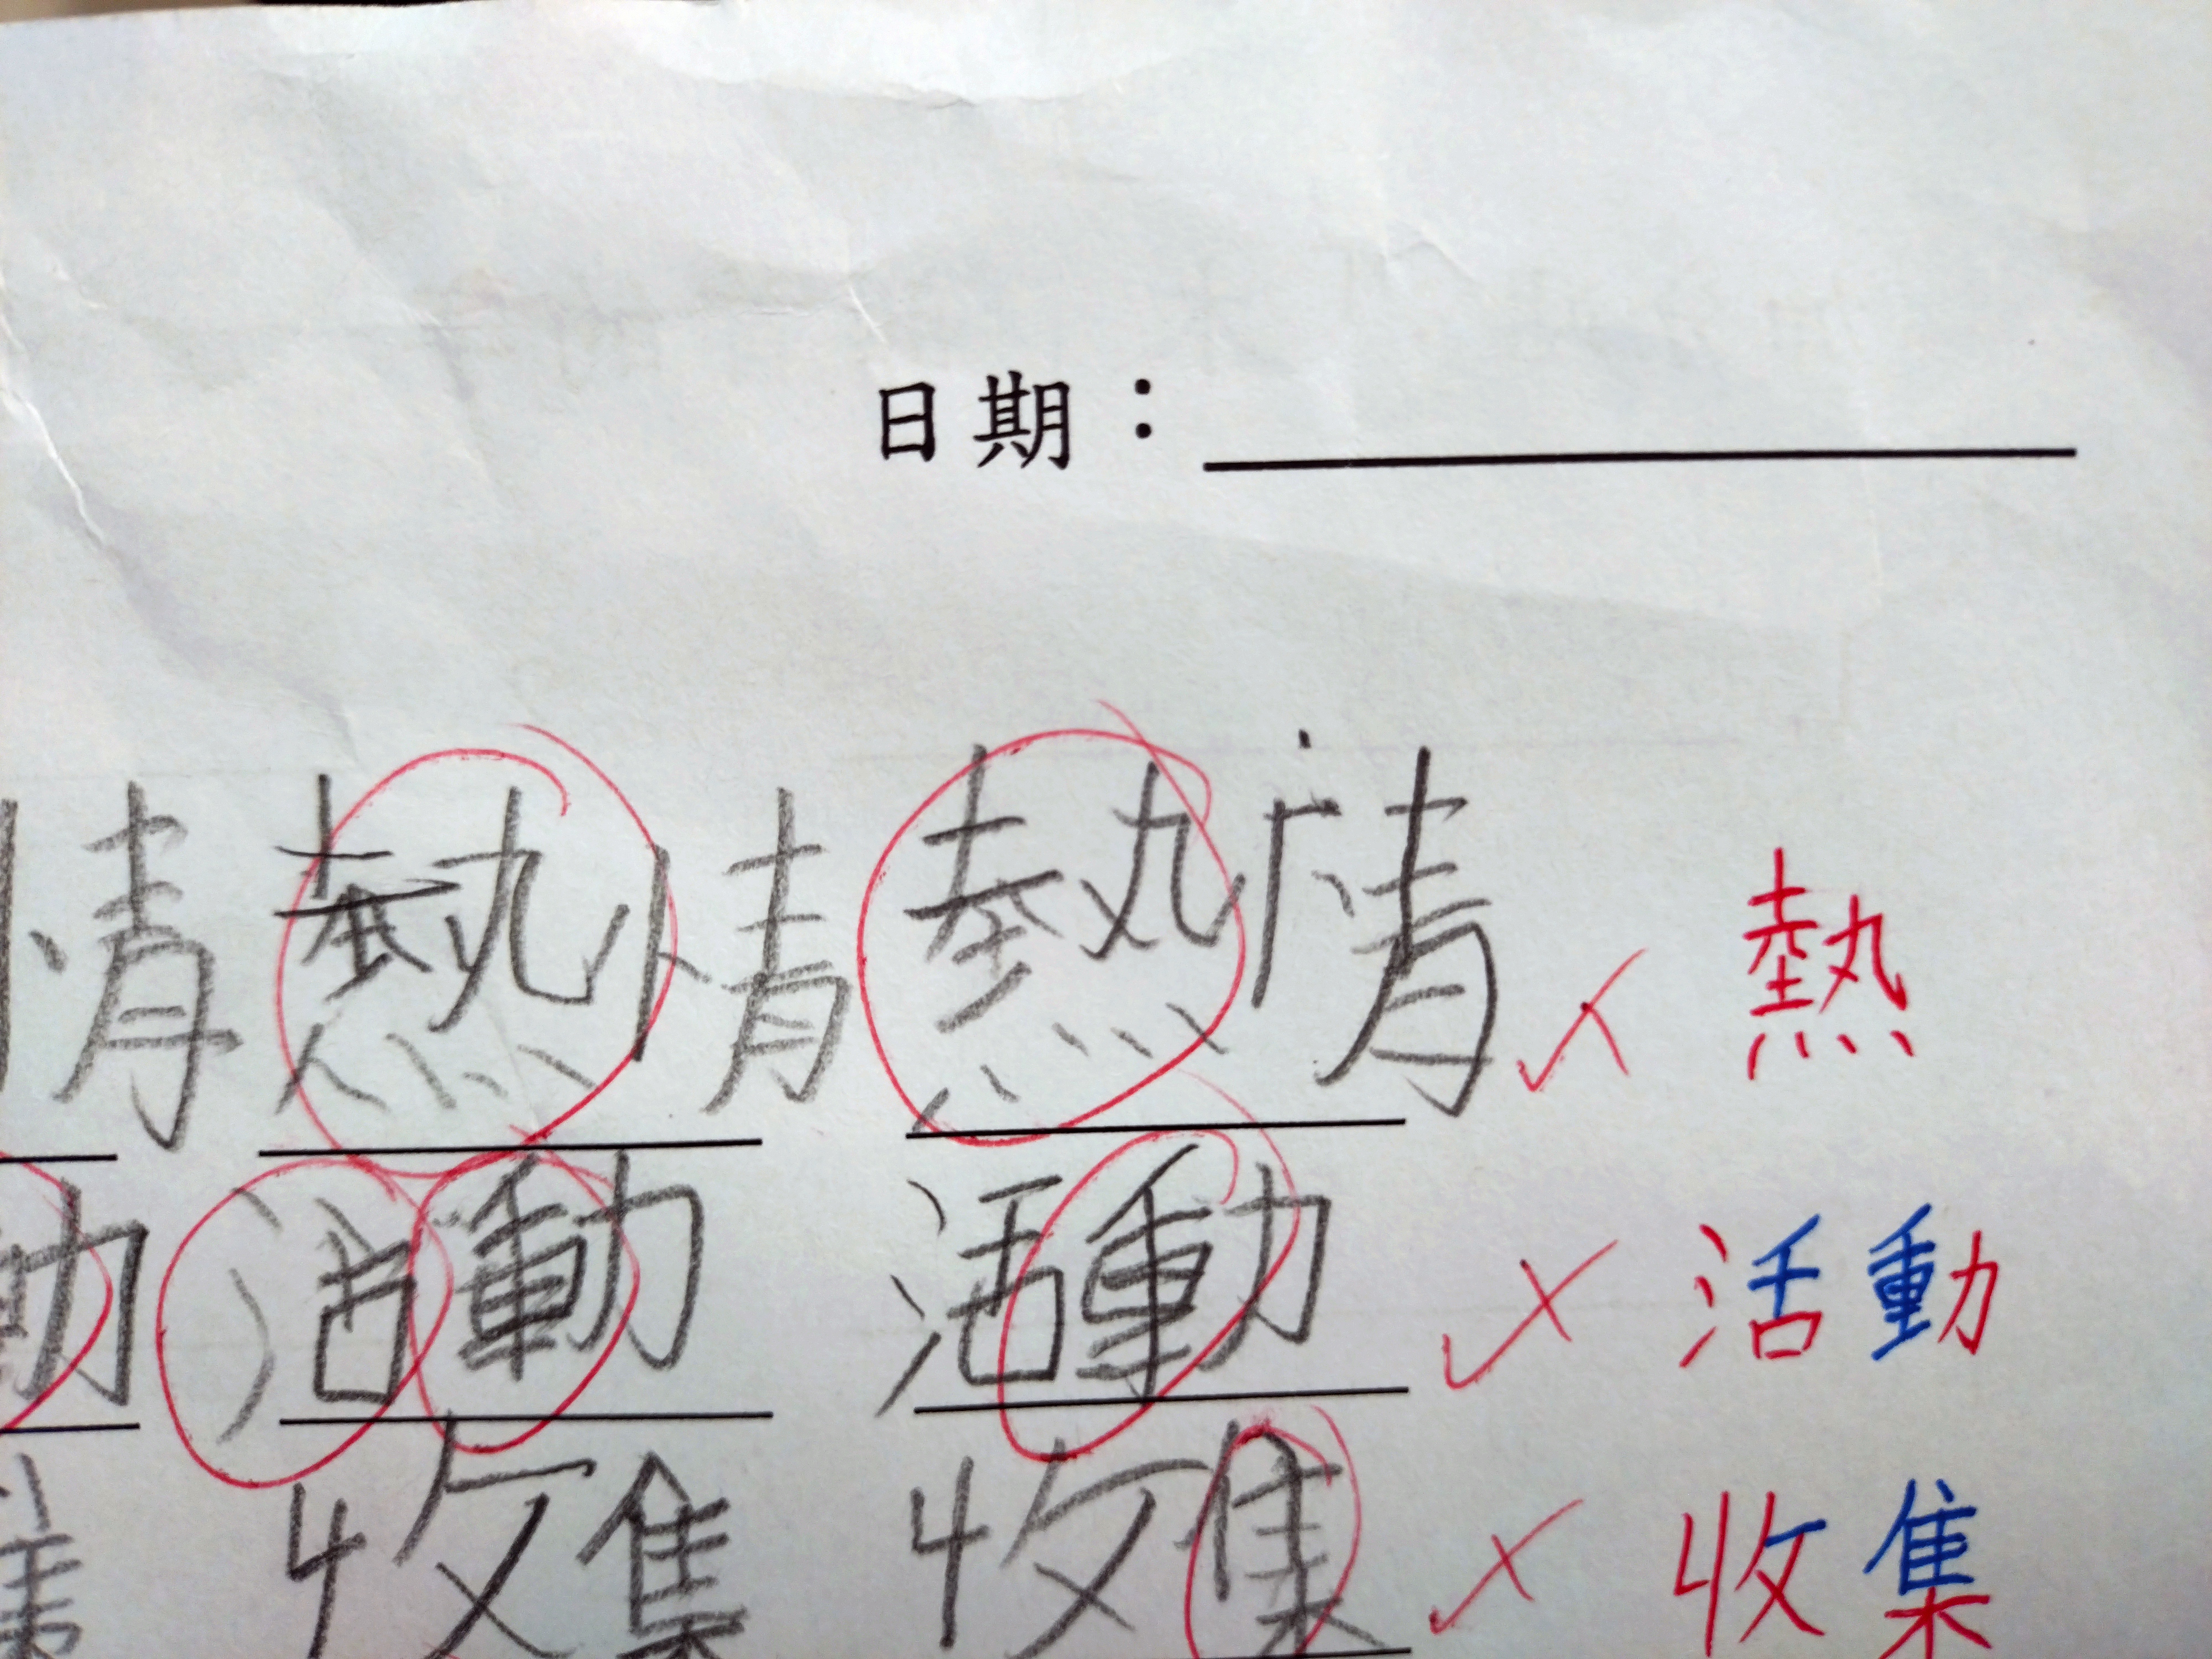 日期：
情 熱情 熱情 熱
動 活動 活動 活動
收集 收集 收集